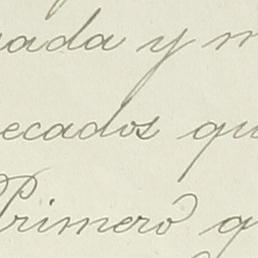 rada y m
ecados qu
Primero q